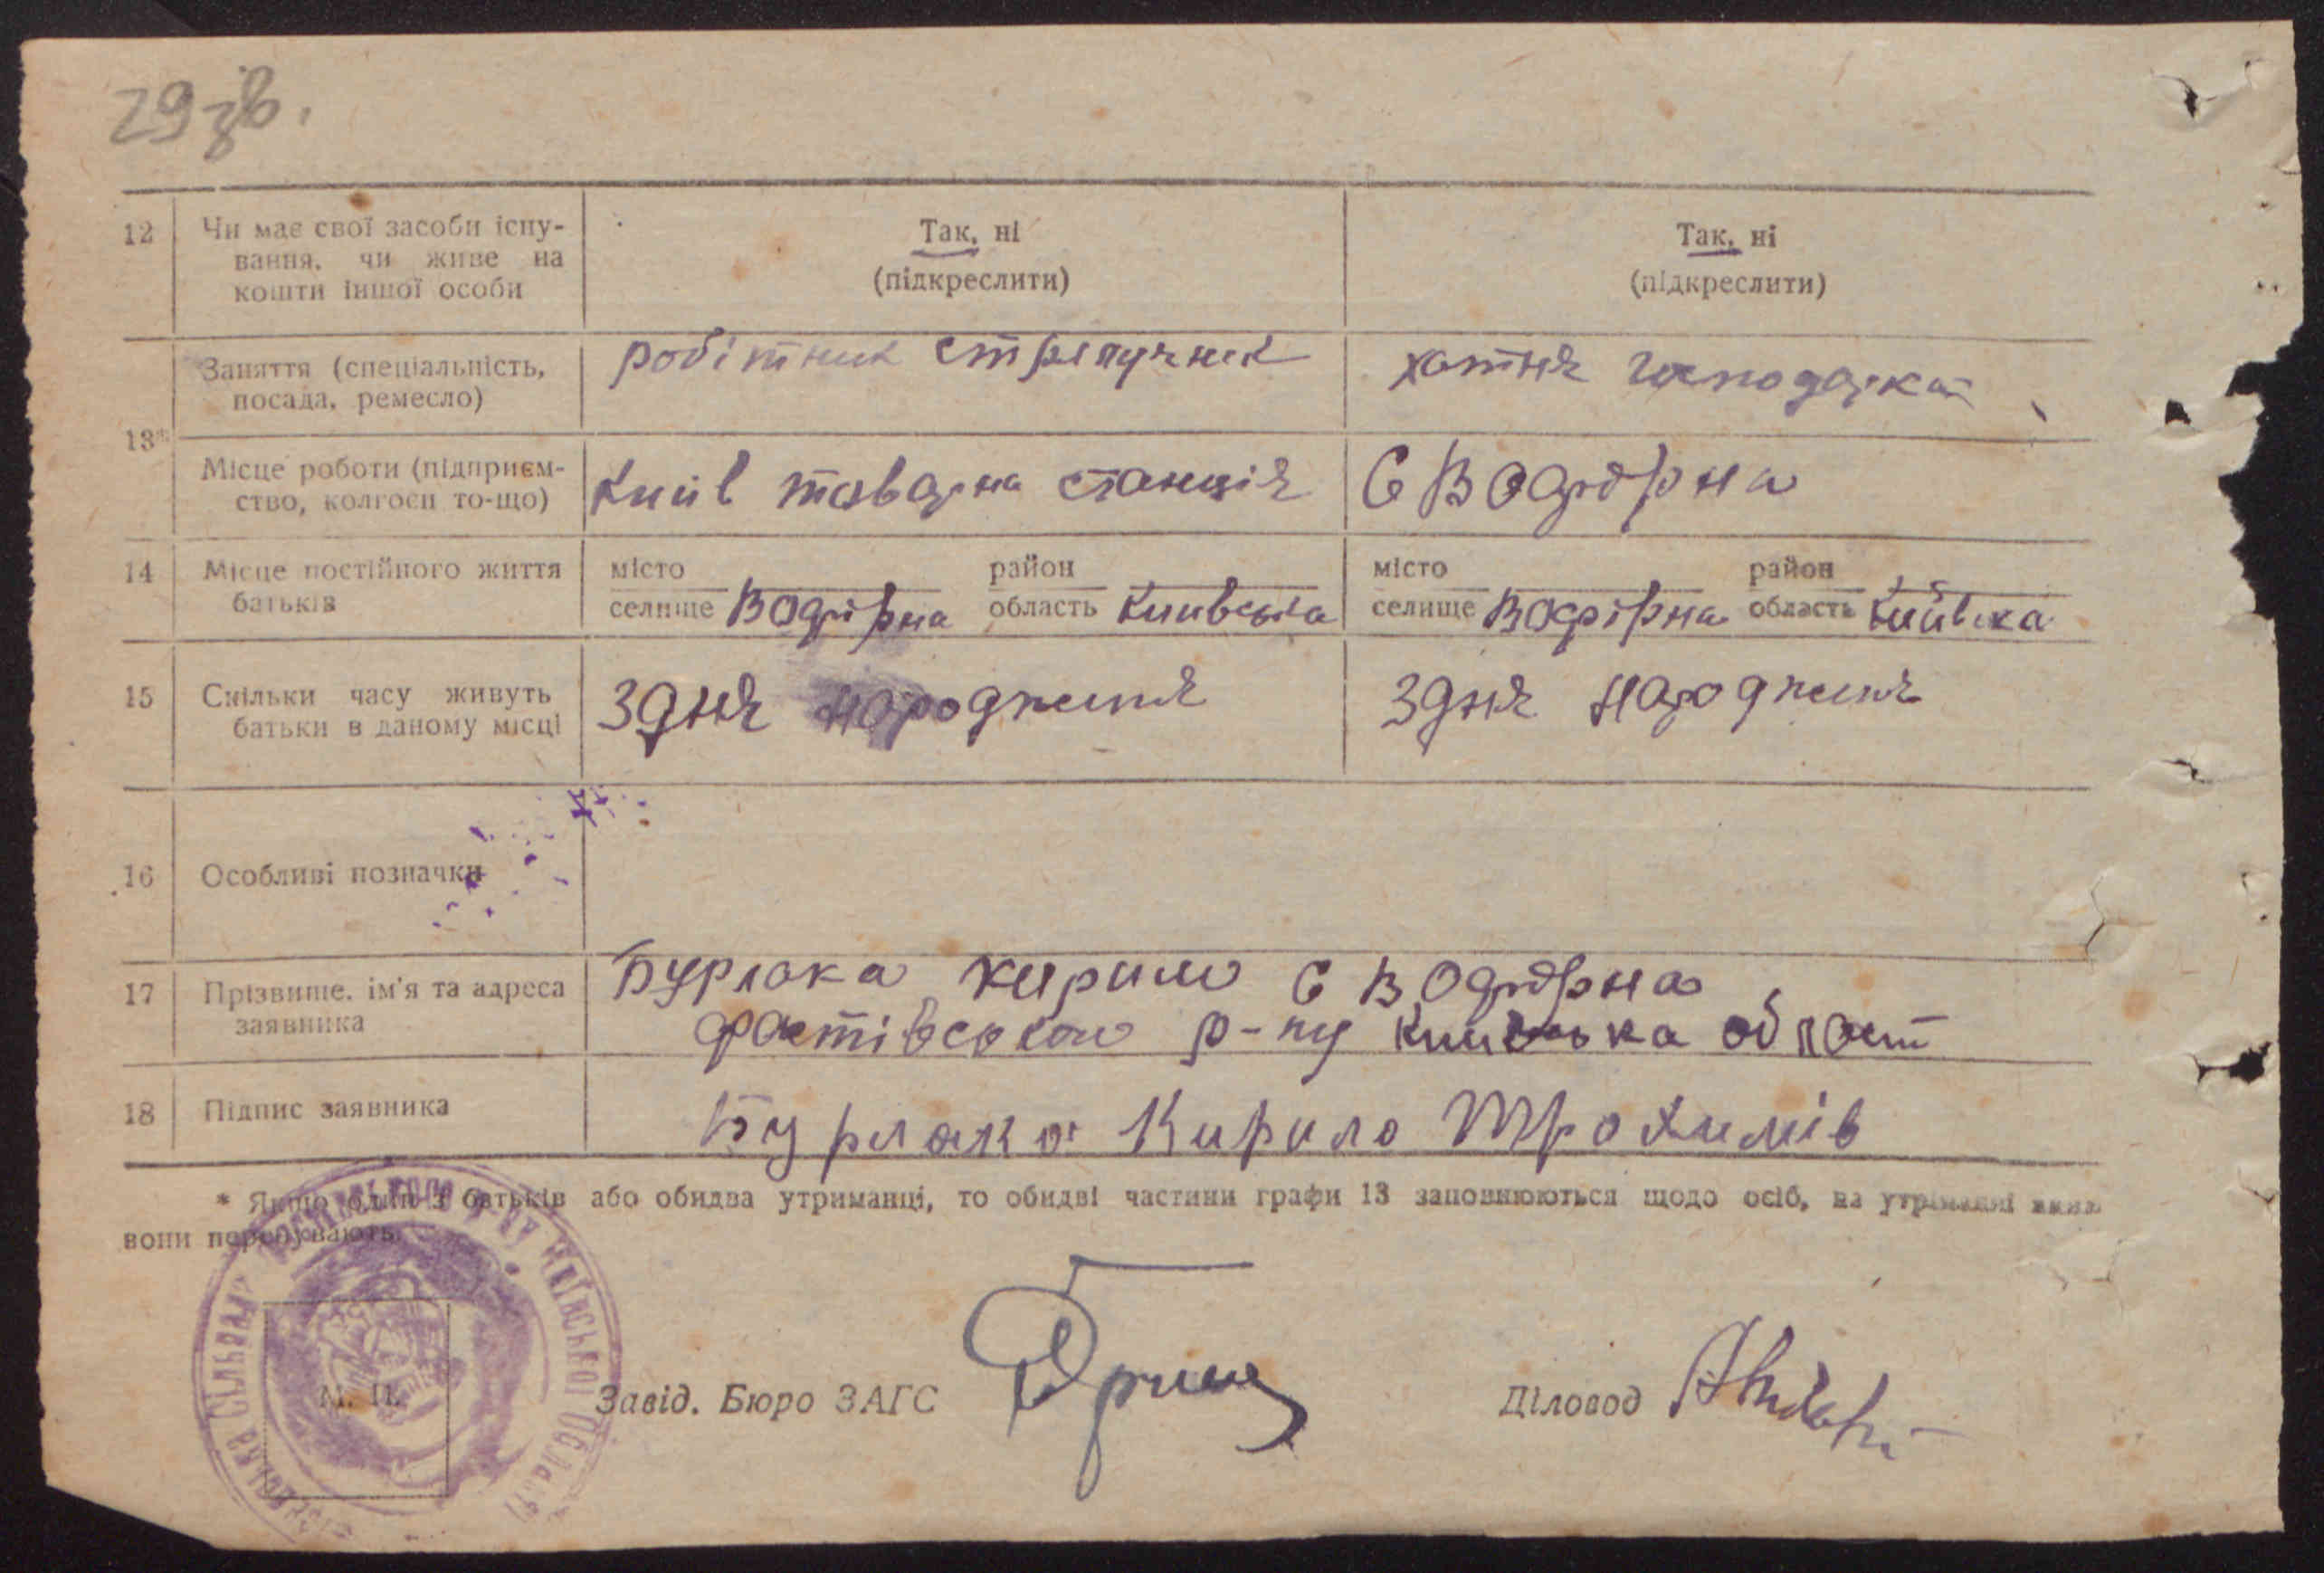 29 зв.
12 Чи має свої засоби існу-
вання, чи живе на
кошти іншої особи
Так, ні
(підкреслити)
Так, ні
(підкреслити)
13*
Заняття (спеціальність,
посада, ремесло)
робітник
хатня господарка
Місце роботи (підприєм-
ство, колгосп то-що)
Київ товарна станція
С Водотрна
14 Місце постійного життя
батьків
місто
селище
район
область Киівська
місто
селище
район
область Київска
15 Скільки часу живуть
батьки в даному місці
З дня народження
З дня народження
16 Особливі позначки
17 Прізвище, ім'я та адреса
заявника
Бурлака Кирило С
Фастівського р-ну Київська област
18 Підпис заявника
Бурлака Кирило Трохимів
* Якщо один з батьків або обидва утриманці, то обидві частини графи 13 заповнюються щодо осіб, на утриманні яких
вони перебувають.
Фастівського р-ну Київської Області
М. П.
Завід. Бюро ЗАГС
Діловод